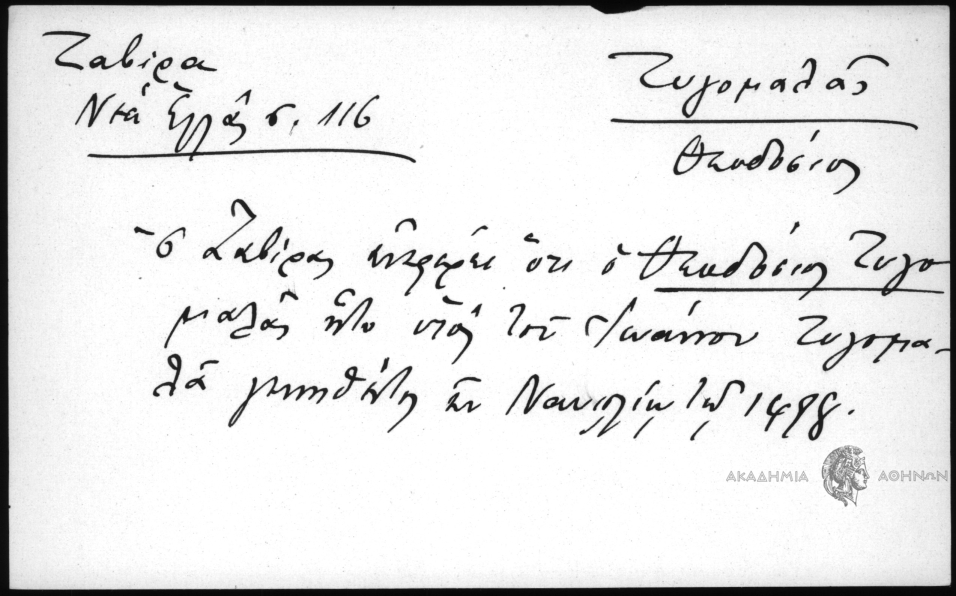 Ζαβίρα
Νέα Ἑλλάς σ. 116
Ζυγομαλᾶς
Θεοδόσιος
ὁ Ζαβίρας ἀναφέρει ὅτι ὁ Θεοδόσιος Ζυγο
μαλᾶς ἦτο υἱὸς τοῦ Ἰωάννου Ζυγομα-
λᾶ γεννηθέντος ἐν Ναυπλίῳ τῷ 1498.
ΑΚΑΔΗΜΙΑ ΑΘΗΝΩΝ